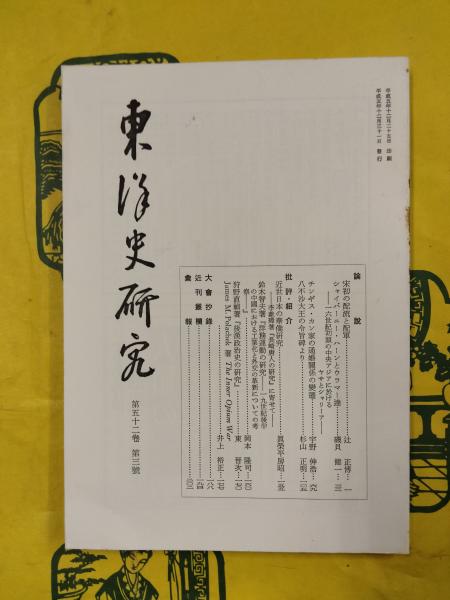 平成五年十二月二十五日 印刷
平成五年十二月三十一日 發行
東洋史研究
第五十二卷 第三號
論說
宋初の配流と配軍 辻 正博
シャイバーニー・ハーンとウラマー達
――一六世紀初頭の中央アジアに於ける
ヤサとシャリーア―― 磯貝 健一
チンギス・カン家の通婚關係の變遷 宇野 伸浩
八不沙大王の令旨碑より 杉山 正明
批評・紹介
近世日本の華僑研究
――李獻璋著『長崎唐人の研究』に寄せて―― 眞榮平房昭
鈴木智夫著『洋務運動の研究――一九世紀後半
の中國における工業化と外交の革新についての考
察――』 岡本 隆司
狩野直禎著『後漢政治史の研究』 東 晉次
James M. Polachek 著 The Inner Opium War
井上 裕正
大會抄錄
近刊叢欄
彙報